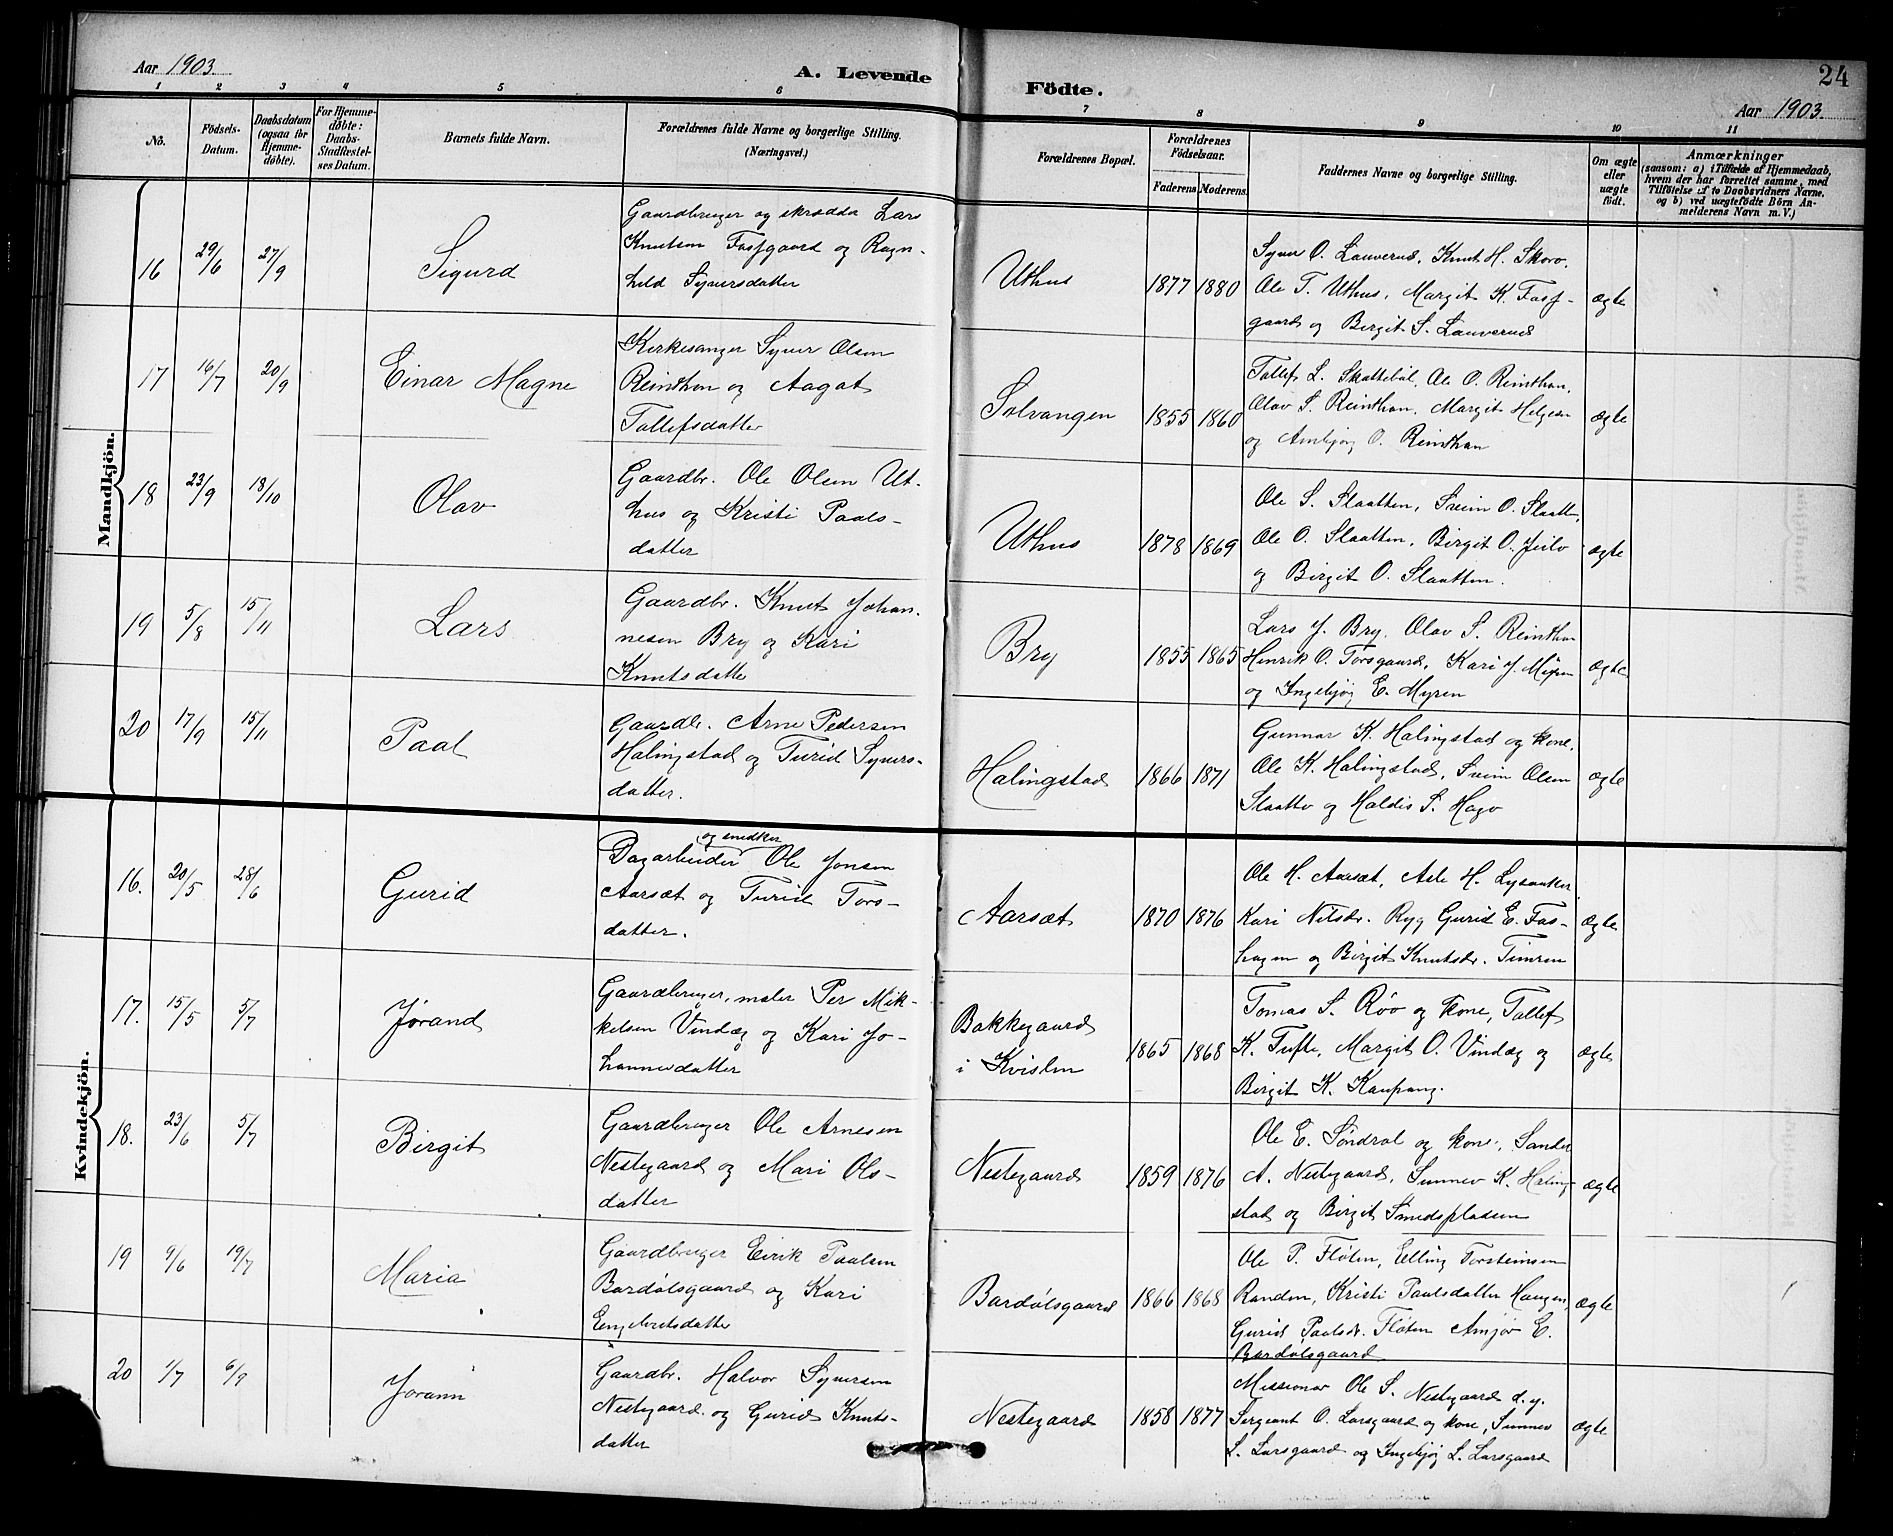 Aar 1903.
A. Levende
Födte.
24
Aar 1903.
1 2 3 4 5 6 7 8 9 10 11
No.
Födsels-
Datum.
Daabsdatum
(ogsaa for
Hjemme-
døbte).
For Hjemme-
døbte:
Daabs-
Stadfæstel-
ses Datum.
Barnets fulde Navn.
Forældrenes fulde Navne og borgerlige Stilling.
(Næringsvei.)
Forældrenes Bopæl.
Forældrenes
Födselsaar.
Faderens Moderens.
Faddernes Navne og borgerlige Stilling.
Om ægte
eller
uægte
födt.
Anmærkninger
(saasom: a) i Tilfælde af Hjemmedaab,
hvem der har forrettet samme, med
Tilföielse af to Daabsvidners Navne.
og b) ved uægtefödte Börn An-
melderens Navn m. V.)
Mandkjön.
16 29/6 27/9 Sigurd
Gaardbruger og skrædder Lars
Knutsen Fosfgaard og Ragn-
hild Syversdatter
Uthus 1877 1880
Syver O. Lauverud, Knut H. Skoro.
Ole T. Uthus, Margit K. Fosf-
gaard og Birgit S. Lauverud
ægte
17 16/7 20/9 Einar Magne
Kirkesanger Syver Olsen
Reinthon og Aagot
Tollefsdatter
Solvangen 1855 1860
Tollef L. Skattebøl, Ole O. Reinthon,
Olav S. Reinthon, Margit Helgesen
og Ambjør O. Reinthon
ægte
18 23/9 18/10 Olav
Gaardbr. Ole Olsen Ut-
hus og Kristi Paals-
datter
Uthus 1878 1869
Ole S. Slaatten, Svein O. Slaatt,
Ole O. Slaatten, Birgit O. Jeilo
og Birgit O. Slaatten.
ægte
19 5/8 15/11 Lars
Gaardbr. Knut Johan-
nesen Bry og Kari
Knutsdatter
Bry 1855 1865
Lars J. Bry, Olav S. Reinthon
Henrik O. Torsgaard, Kari J. Myren
og Ingebjør E. Myren
ægte
20 17/9 15/11 Paal
Gaardbr. Arne Pedersen
Halingstad og Turid Syvers-
datter.
Halingstad 1866 1871
Gunnar K. Halingstad og kone,
Ole K. Halingstad, Svein Olsen
Slaatto og Haldis S. Hago
ægte
Kvindekjön.
16. 20/5 28/6 Gurid
og snedker
Dagarbeider Ole Jonsen
Aarsæt og Turid Tors-
datter.
Aarsæt 1870 1876
Ole H. Aarsæt, Asle H. Lysaaker
Kari Nilsdr. Ryg Gurid E. Fos-
hagen og Birgit Knutsdr. Timren
ægte
17. 15/5 5/7 Jørand
Gaardbruger, maler Per Mik-
kelsen Vindæg og Kari Jo-
hannesdatter
Bakkegaard
i Kvislen
1865 1868
Tomas S. Røo og kone, Tollef
K. Tufte, Margit O. Vindæg og
Birgit K. Kaupang.
ægte
18. 23/6 5/7 Birgit
Gaardbruger Ole Arnesen
Nestegaard og Mari Ols-
datter
Nestegaard 1859 1876
Ole E. Søndrol og kone, Sander
A. Nestegaard, Sunnev K. Haling-
stad og Birgit Smedspladsen
ægte
19 9/6 19/7 Maria
Gaardbruger Eirik Paalsen
Bardølsgaard og Kari
Engebretsdatter
Bardølsgaard 1866 1868
Ole P. Fløten, Elling Torsteinsen
Randen, Kristi Paalsdatter Haugen,
Gurid Paalsdr. Fløten Amjør E.
Bardølsgaard
ægte
20 1/7 6/9 Jorann
Gaardbr. Halvor Syversen
Nestegaard og Gurid Knuts-
datter
Nestegaard 1858 1877
Missionær Ole S. Nestegaard d.y.
Sergeant O. Larsgaard og kone, Sunnev
L. Larsgaard og Ingebjør L. Larsgaard
ægte